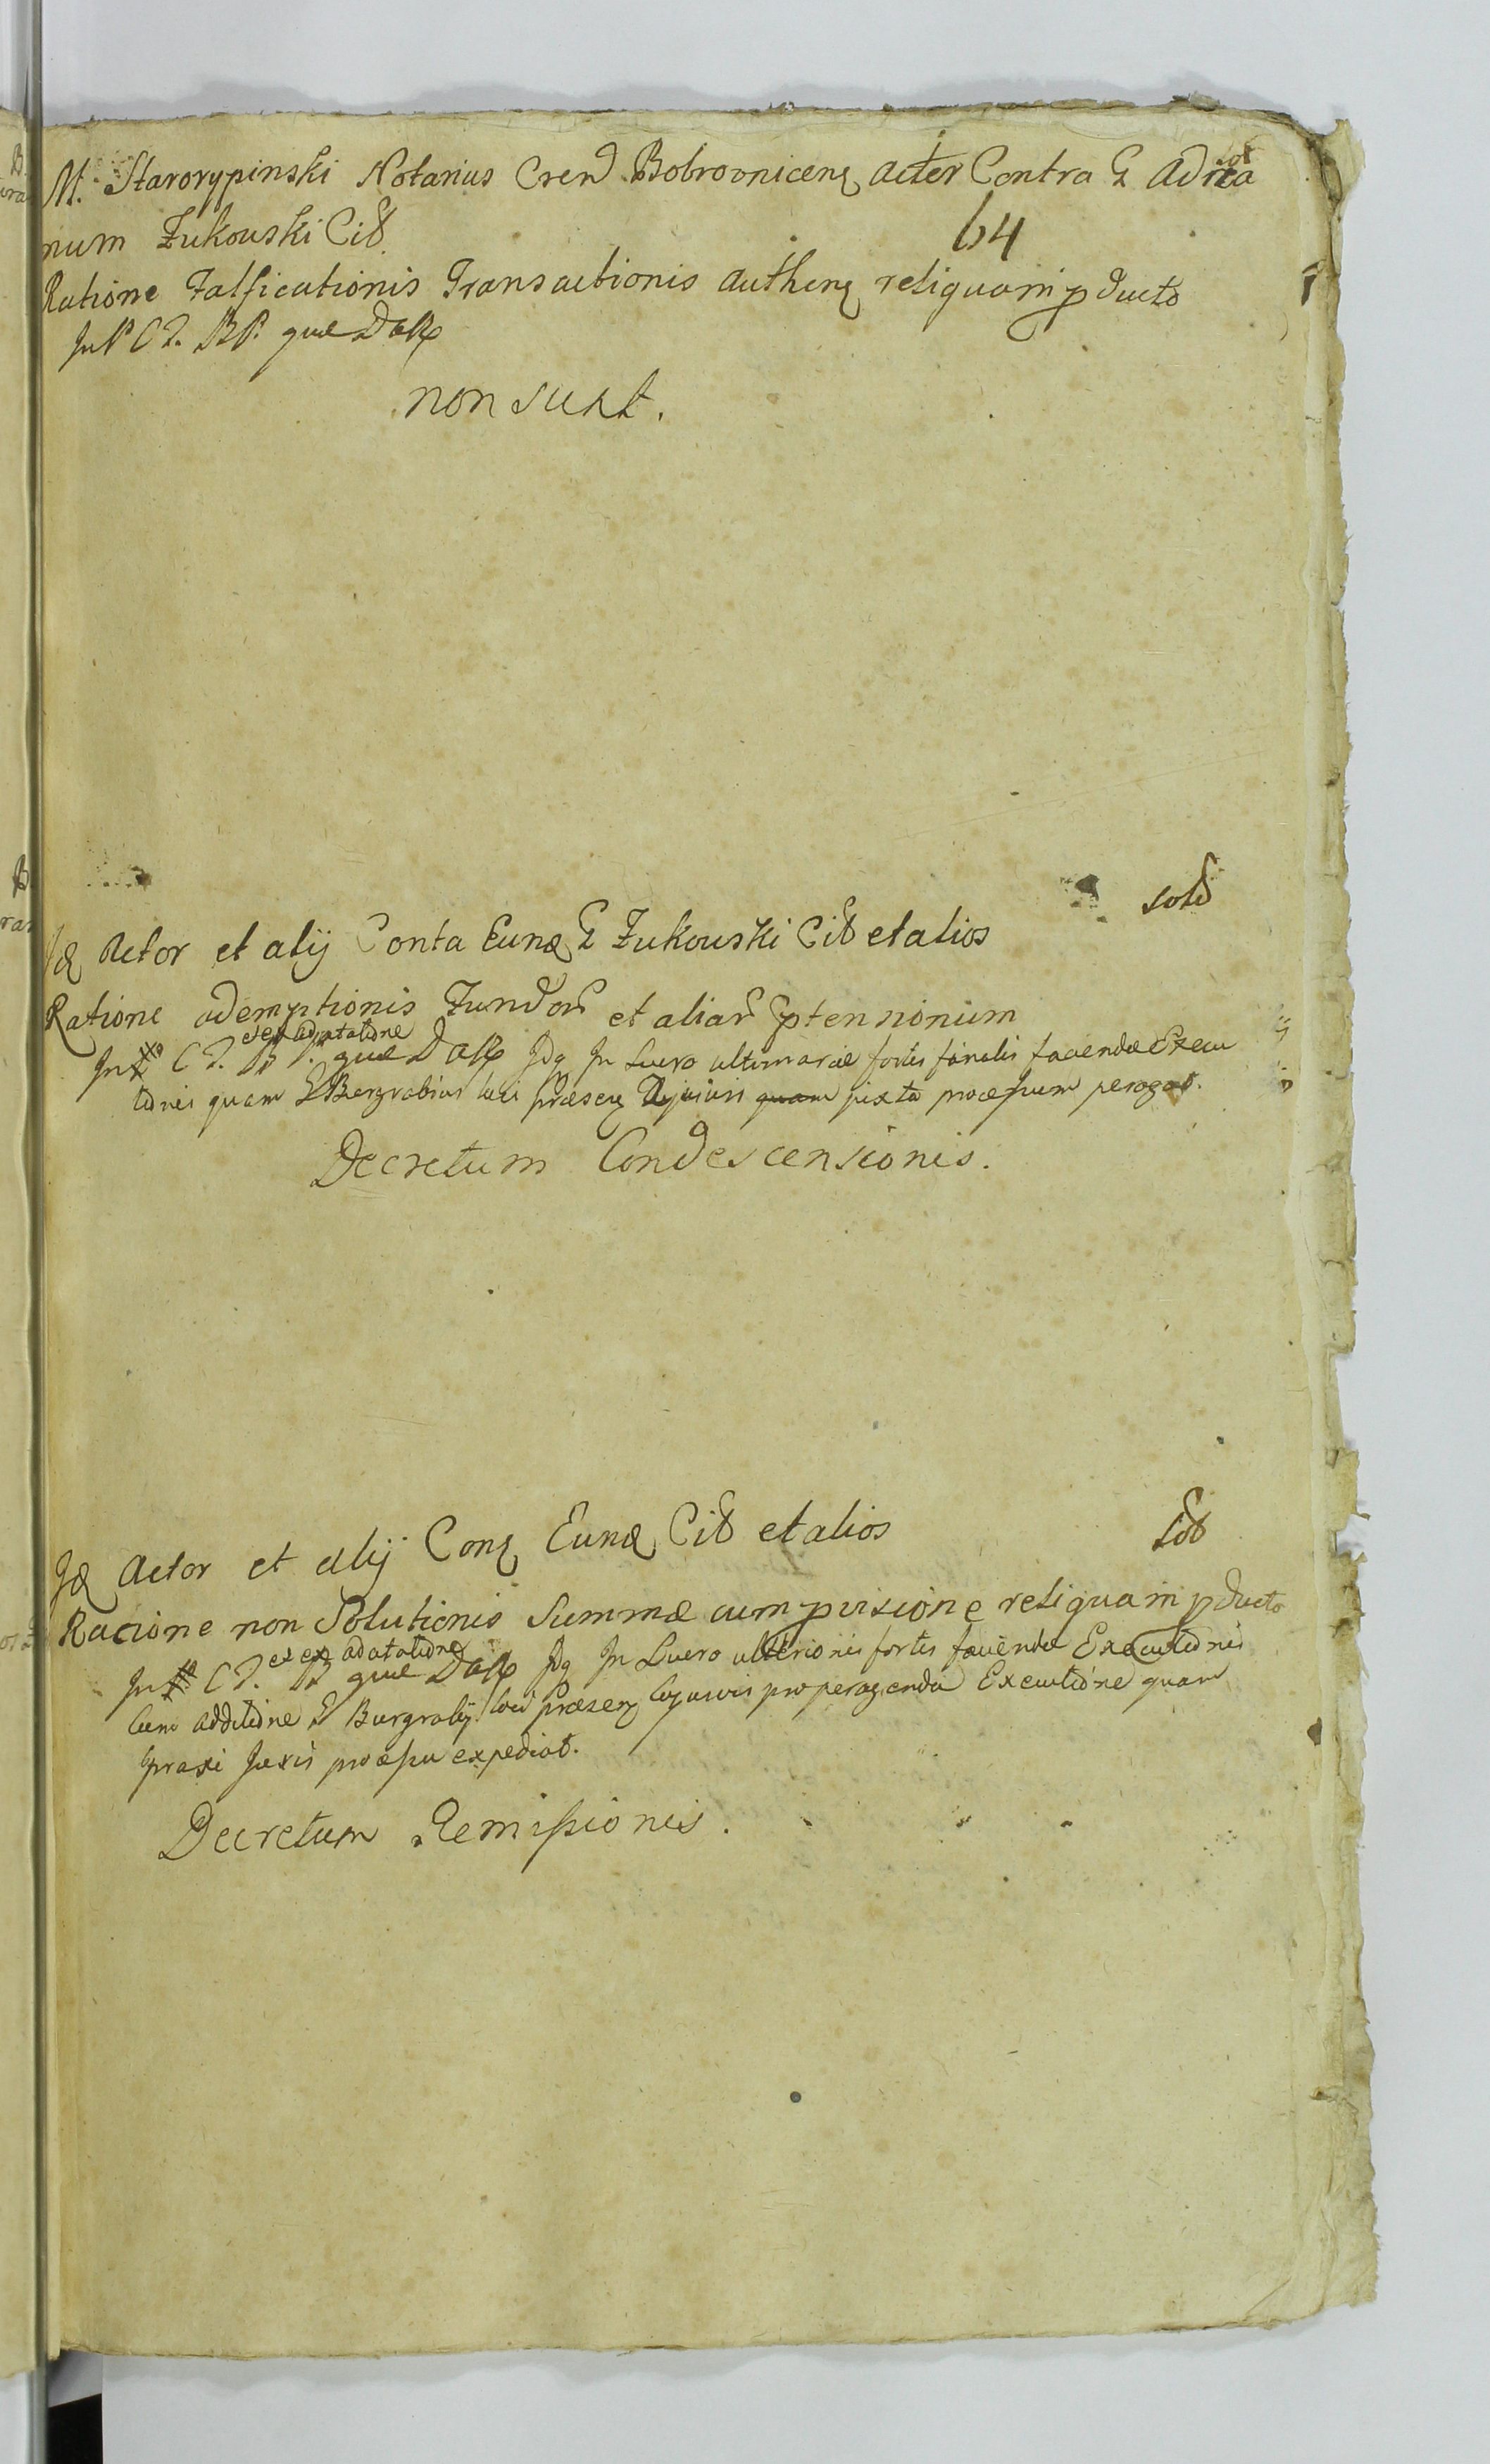 M. Starorypinski Notarius Cren Bobrovnicen actor Contra G Adria
sol
num Zukouski Cit
64
Ratione Falsificationis Transactionis authen reliquam pducto
In P C P. BP. quæ Dass
non sunt.
solt
Id Actor et alij Conta Eund G Zukouski Cit et alios
Ratione ademptionis Fundor et aliar ptensionum
et ex adatatione
In C P. quæ Dass Idq In Lucro ultimariæ fortis finalis faciendæ Execu
tionis quam G Burgrabius loci præsen juxta processum peragat.
Decretum Condescensionis.
Id Actor et alij Con Eund Cit et alios
solt
Racione non Solutionis Summæ cum pvisione reliquam pducto
et ex adatatione
In C P. quæ Dass Idq In Lucro ulterioris fortis faciendæ Executionis
Cum additione G Burgrabij loci præsen cujusvis pro peragenda Executione quam
praxi Juris processu expediat.
Decretum Remissionis.